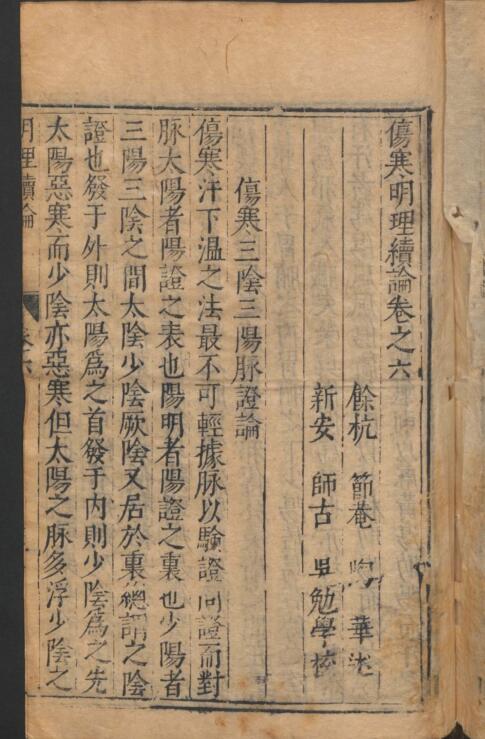 傷寒明理續論卷之六
餘杭 節菴 陶 華 述
新安 師古 吳勉學 校
傷寒三陰三陽脉證論
傷寒汗下溫之法最不可輕據脉以驗證問證而對
脉太陽者陽證之表也陽明者陽證之裏也少陽者
三陽三陰之間太陰少陰厥陰又居於裏緫謂之陰
證也發于外則太陽爲之首發于内則少陰爲之先
太陽惡寒而少陰亦惡寒但太陽之脉多浮少陰之
明理續論 卷之六